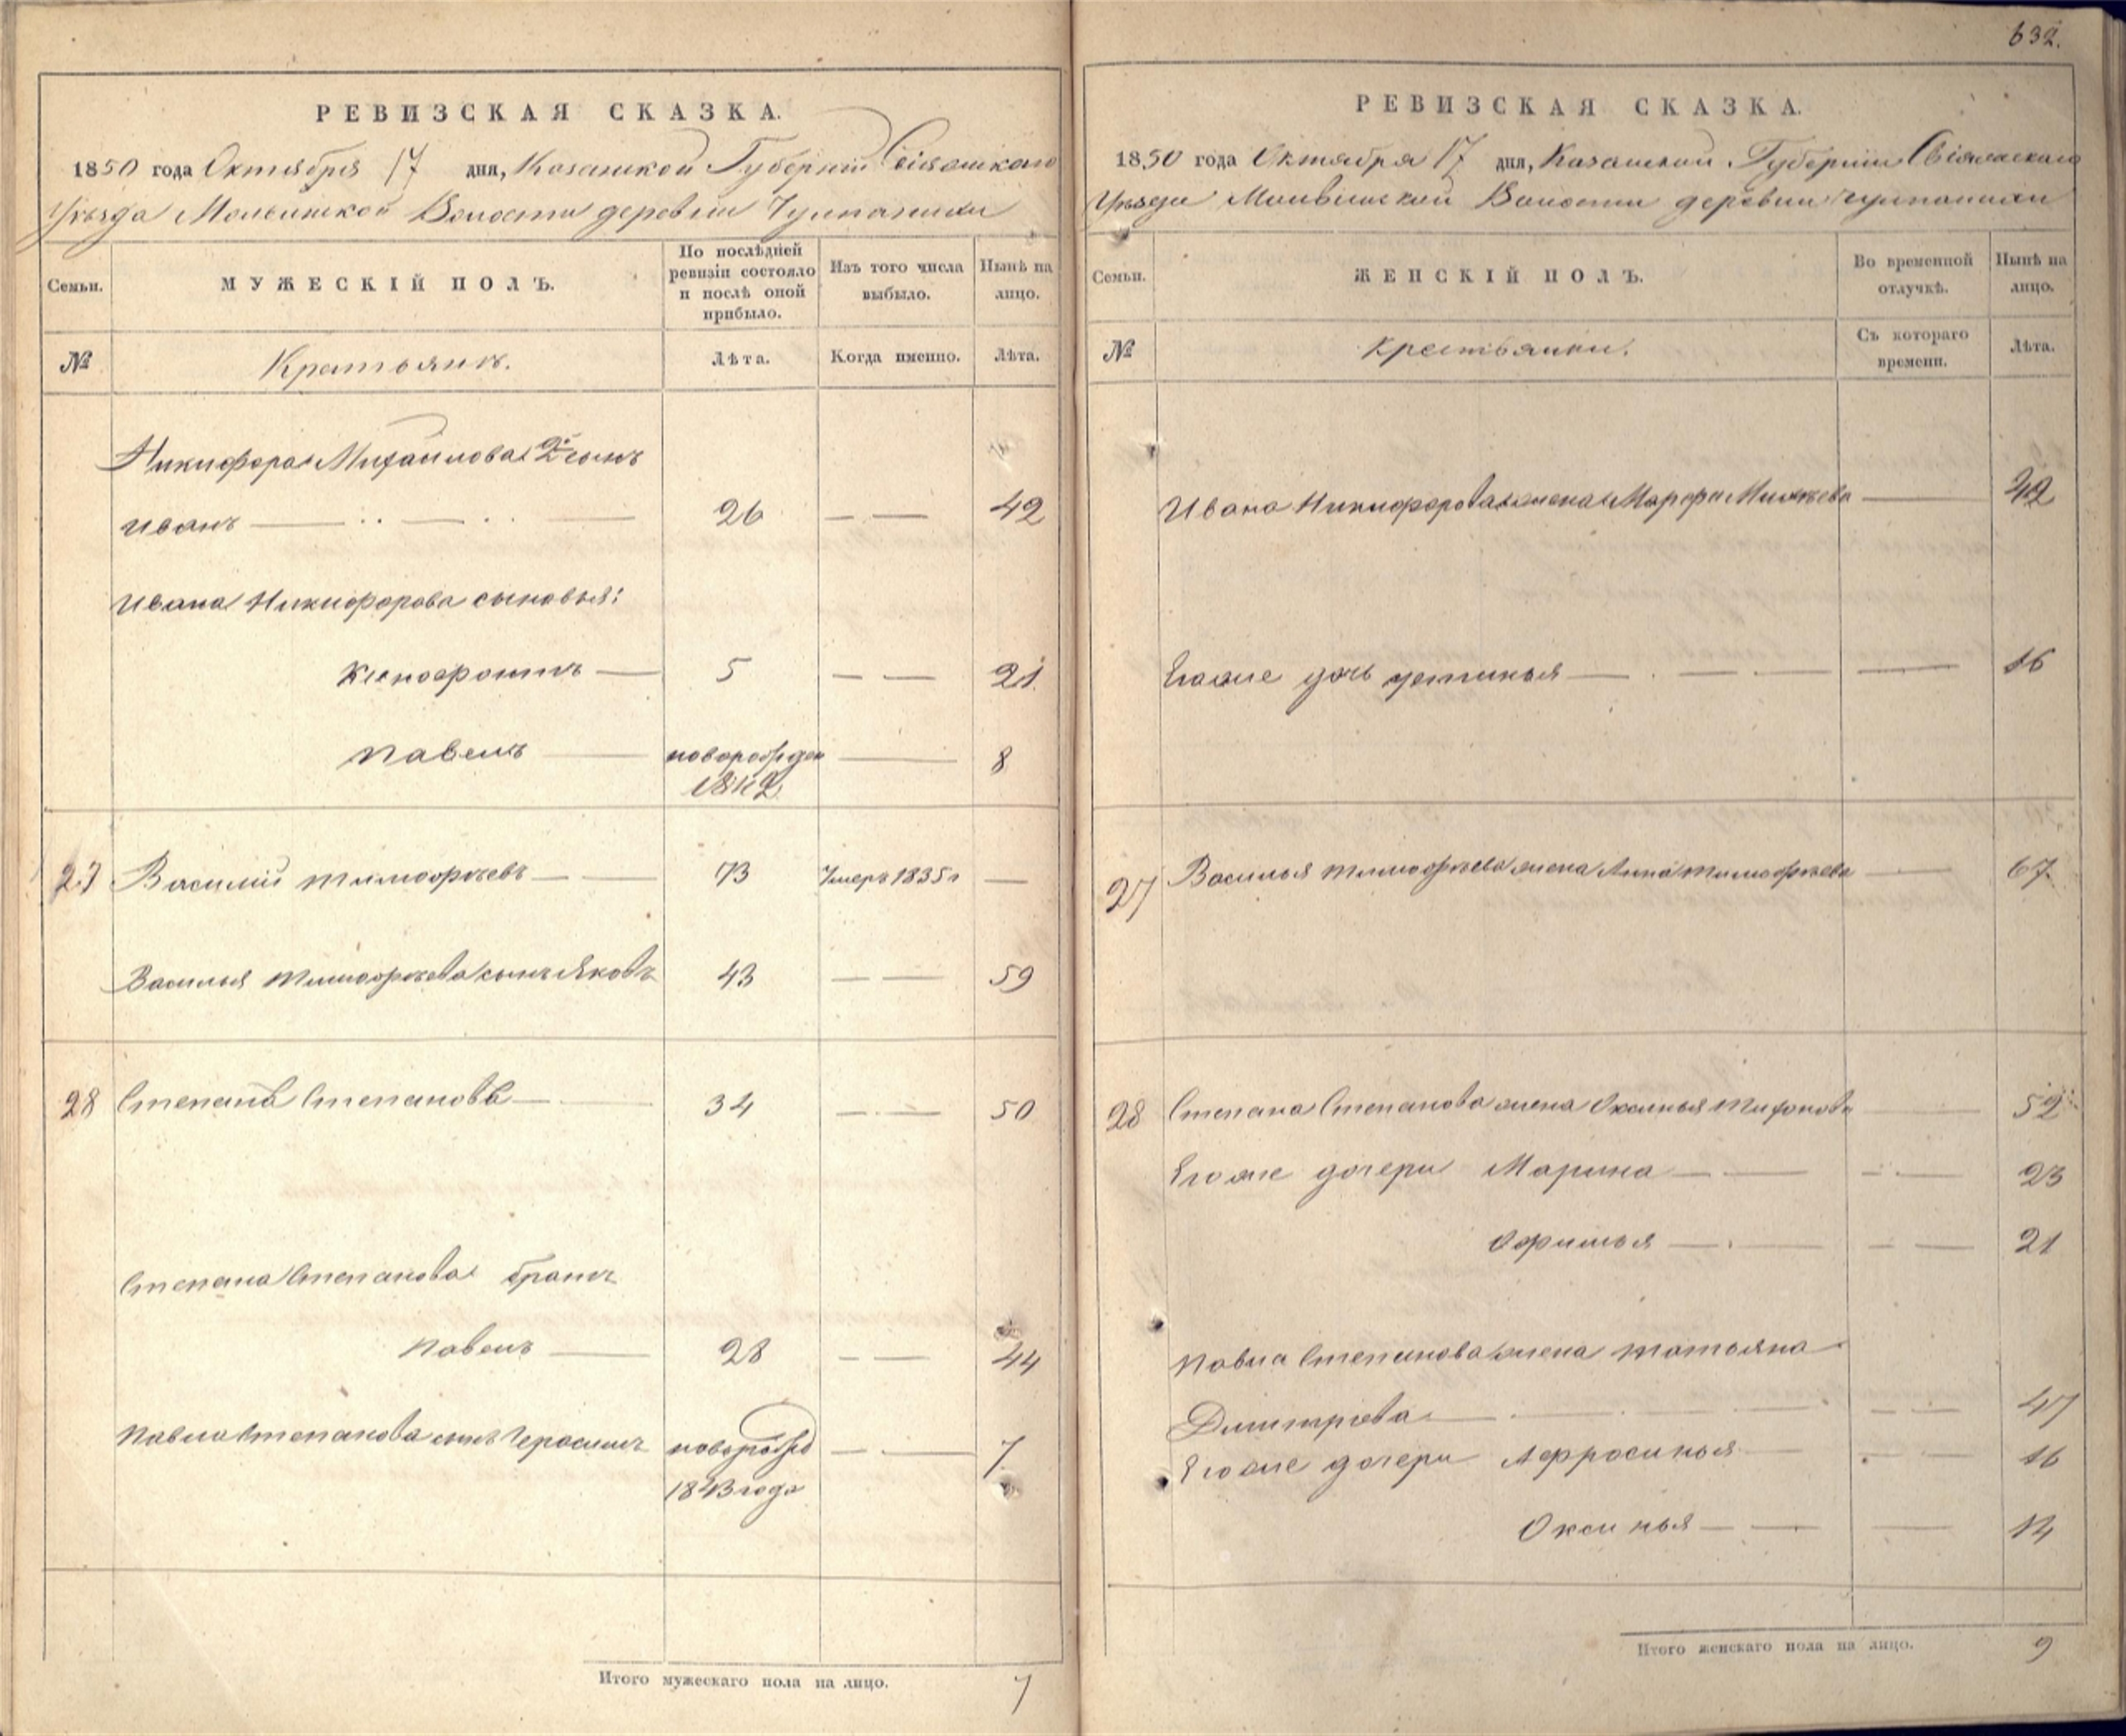 РЕВИЗСКАЯ СКАЗКА.
1850 года Октября 17 дня, Казанской Губернии Свіяжскаго
Уѣзда Волости деревни
Семьи.
МУЖЕСКІЙ ПОЛЪ.
По послѣдней
ревизіи состояло
и послѣ оной
прибыло.
Изъ того числа
выбыло.
Нынѣ на
лицо.
№
Крестьянъ.
Лѣта.
Когда именно.
Лѣта.
Никифора Михайлова 2й сынъ
Иванъ 26 42
Ивана Никифорова сыновья:
Ксенофонтъ 5 21
Павелъ новорожден 8
1842
27 Василий Тимофѣевъ 73 Умеръ 1835г
Василья Тимофѣева сынъ Яковъ 43 59
28 Степанъ Степановъ 34 50
Степана Степанова братъ
Павелъ 28 44
Павла Степанова сынъ Герасимъ новорожд 7
1843 года
Итого мужескаго пола на лицо. 7
632.
РЕВИЗСКАЯ СКАЗКА.
1850 года Октября 17 дня, Казанской Губерніи Свіяжскаго
Уѣзда Волости деревни
Семьи.
ЖЕНСКІЙ ПОЛЪ.
Во временной
отлучкѣ.
Нынѣ на
лицо.
№
Крестьянки.
Съ котораго
времени.
Лѣта.
Ивана Никифорова жена Марфа 42
Егоже дочь Устинья 16
27 Василья Тимофѣева жена Анна Тимофѣева 67
28 Степана Степанова жена 52
Егоже дочери Марина 23
Офимья 21
Павла Степанова жена Татьяна
Димитріева 47
Егоже дочери Афросинья 16
Оксинья 14
Итого женскаго пола на лицо. 9